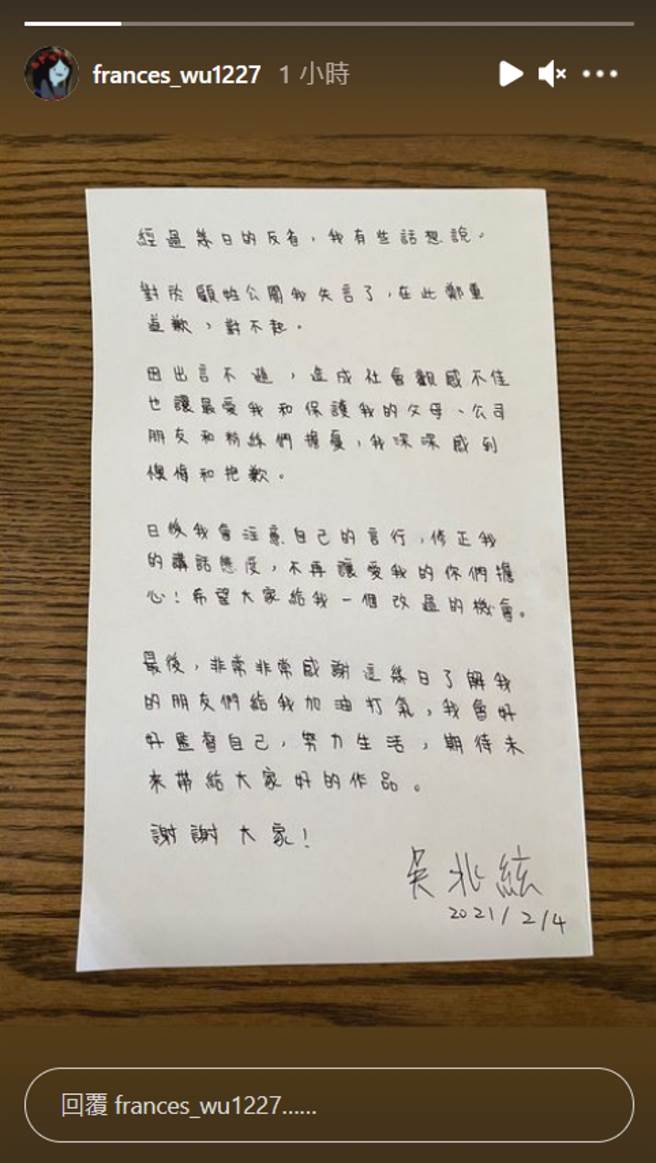 frances_wu1227 1 小時
經過幾日的反省，我有些話想說。
對於顧姓公關我失言了，在此鄭重
道歉，對不起。
因出言不遜，造成社會觀感不佳
也讓最愛我和保護我的父母、公司
朋友和粉絲們擔憂，我深深感到
懊悔和抱歉。
日後我會注意自己的言行，修正我
的講話態度，不再讓愛我的你們擔
心！希望大家給我一個改過的機會。
最後，非常非常感謝這幾日了解我
的朋友們給我加油打氣，我會好
好監督自己，努力生活，期待未
來帶給大家好的作品。
謝謝大家！
吳兆絃
2021/2/4
回覆 frances_wu1227......